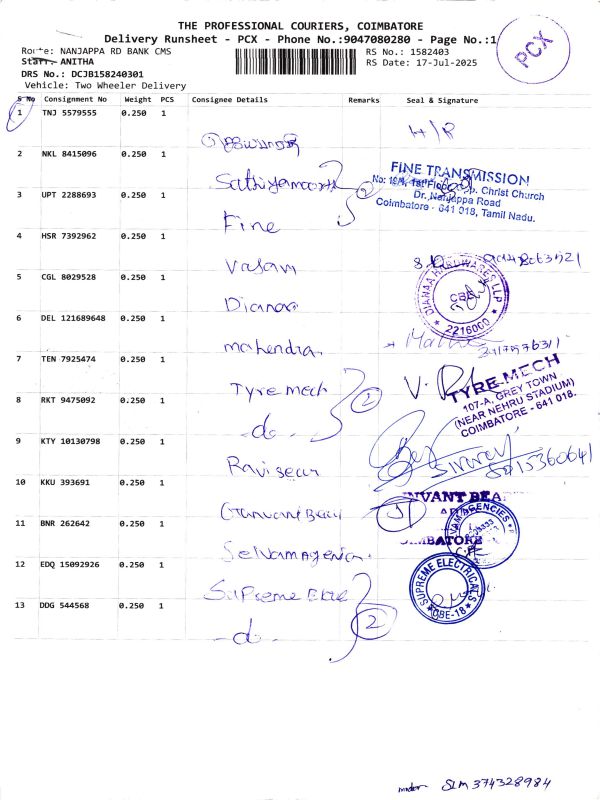 THE PROFESSIONAL COURIERS, COIMBATORE
Delivery Runsheet - PCX - Phone No.:9047080280 - Page No.:1
PCX
Route: NANJAPPA RD BANK CMS
RS No.: 1582403
Staff: ANITHA
RS Date: 17-Jul-2025
DRS No.: DCJB158240301
Vehicle: Two Wheeler Delivery
S No Consignment No Weight PCS Consignee Details Remarks Seal & Signature
1 TNJ 5579555 0.250 1
H/P
2 NKL 8415096 0.250 1
Sathiyamoorthy 2
FINE TRANSMISSION
1st Floor, Opp. Christ Church
Dr. Nanjappa Road
Coimbatore - 641 018, Tamil Nadu.
3 UPT 2288693 0.250 1
Fine
4 HSR 7392962 0.250 1
Vasan
5 CGL 8029528 0.250 1
Diana
DIANAA HARDWARES LLP
CBE
2216000
6 DEL 121689648 0.250 1
mahendran
7 TEN 7925474 0.250 1
Tyre mech 2
V.
TYRE MECH
107-A, GREY TOWN
(NEAR NEHRU STADIUM)
COIMBATORE - 641 018.
8 RKT 9475092 0.250 1
-do-
9 KTY 10130798 0.250 1
10 KKU 393691 0.250 1
11 BNR 262642 0.250 1
Selvam Agencies
12 EDQ 15092926 0.250 1
Supreme Elec
SUPREME ELECTRICALS
CBE-18
13 DDG 544568 0.250 1
-do- 2
SLM 374328984